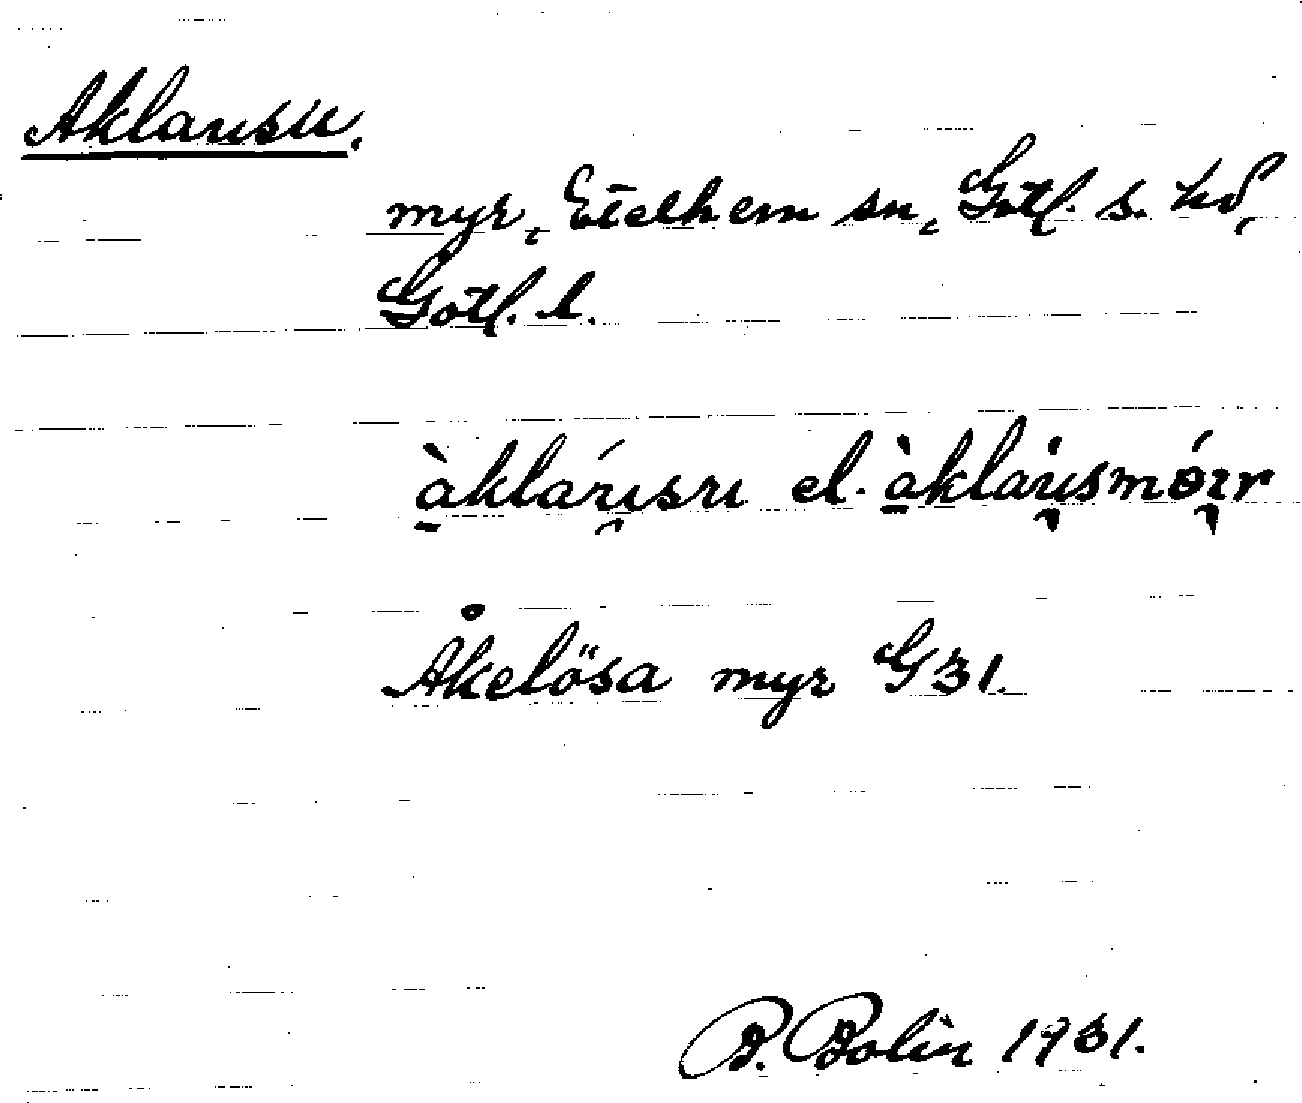 Aklausu.
myr, Etelhem sn, Gotl. s. hd,
Gotl. l.
àkláu̯su el. àkláu̯smói̯r
Åkelösa myr G 31.
B. Bolin 1931.